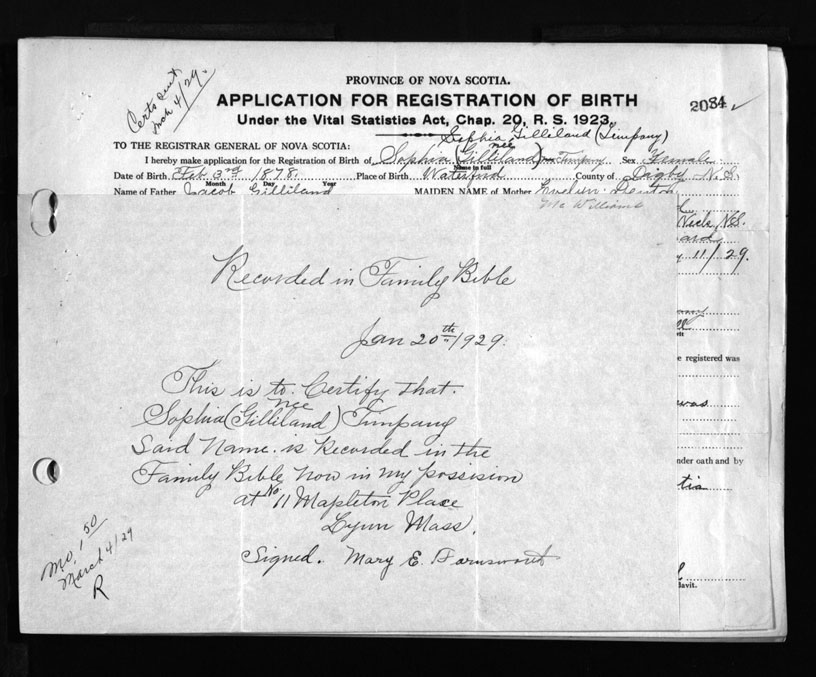 Certs sent
Mch 4/29.
PROVINCE OF NOVA SCOTIA.
APPLICATION FOR REGISTRATION OF BIRTH
2034
Under the Vital Statistics Act, Chap. 20, R. S. 1923.
Sophia Gilliland (Timpany)
TO THE REGISTRAR GENERAL OF NOVA SCOTIA:
nee
I hereby make application for the Registration of Birth of Sophia (Gilliland) Timpany Sex Female
Name in full
Date of Birth Feb 3rd 1878. Place of Birth Waterford County of Digby N.S.
Month Day Year
Name of Father Jacob Gilliland MAIDEN NAME of Mother Denton
Mc Williams
N.S.
11/29.
e registered was
was
nder oath and by
tia
davit.
Recorded in Family Bible
Jan 20th 1929.
This is to Certify that.
nee
Sophia (Gilliland) Timpany
Said Name. is Recorded in the
Family Bible now in my possision
at No. 11 Mapleton Place
Lynn Mass.
Signed. Mary E. Farnsworth
M.O. 1.50
March 4/29
R